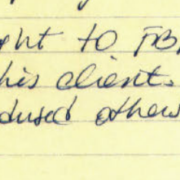 ght to FB
his client.
duced others